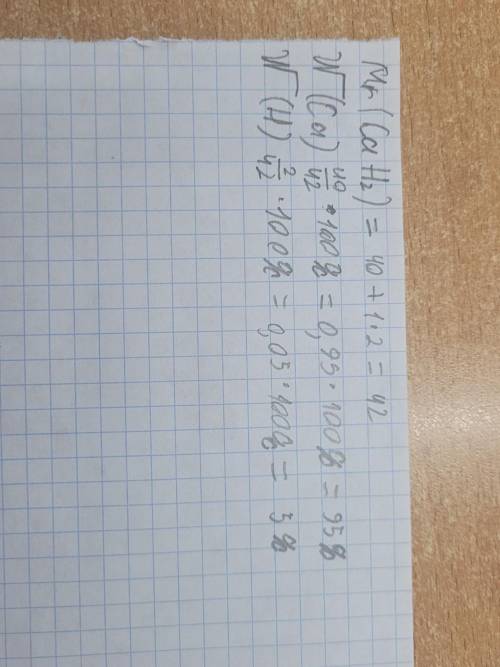 Mr (CaH₂) = 40 + 1·2 = 42
W (Ca) 40/42 · 100% = 0,95 · 100% = 95%
W (H) 2/42 · 100% = 0,05 · 100% = 5%